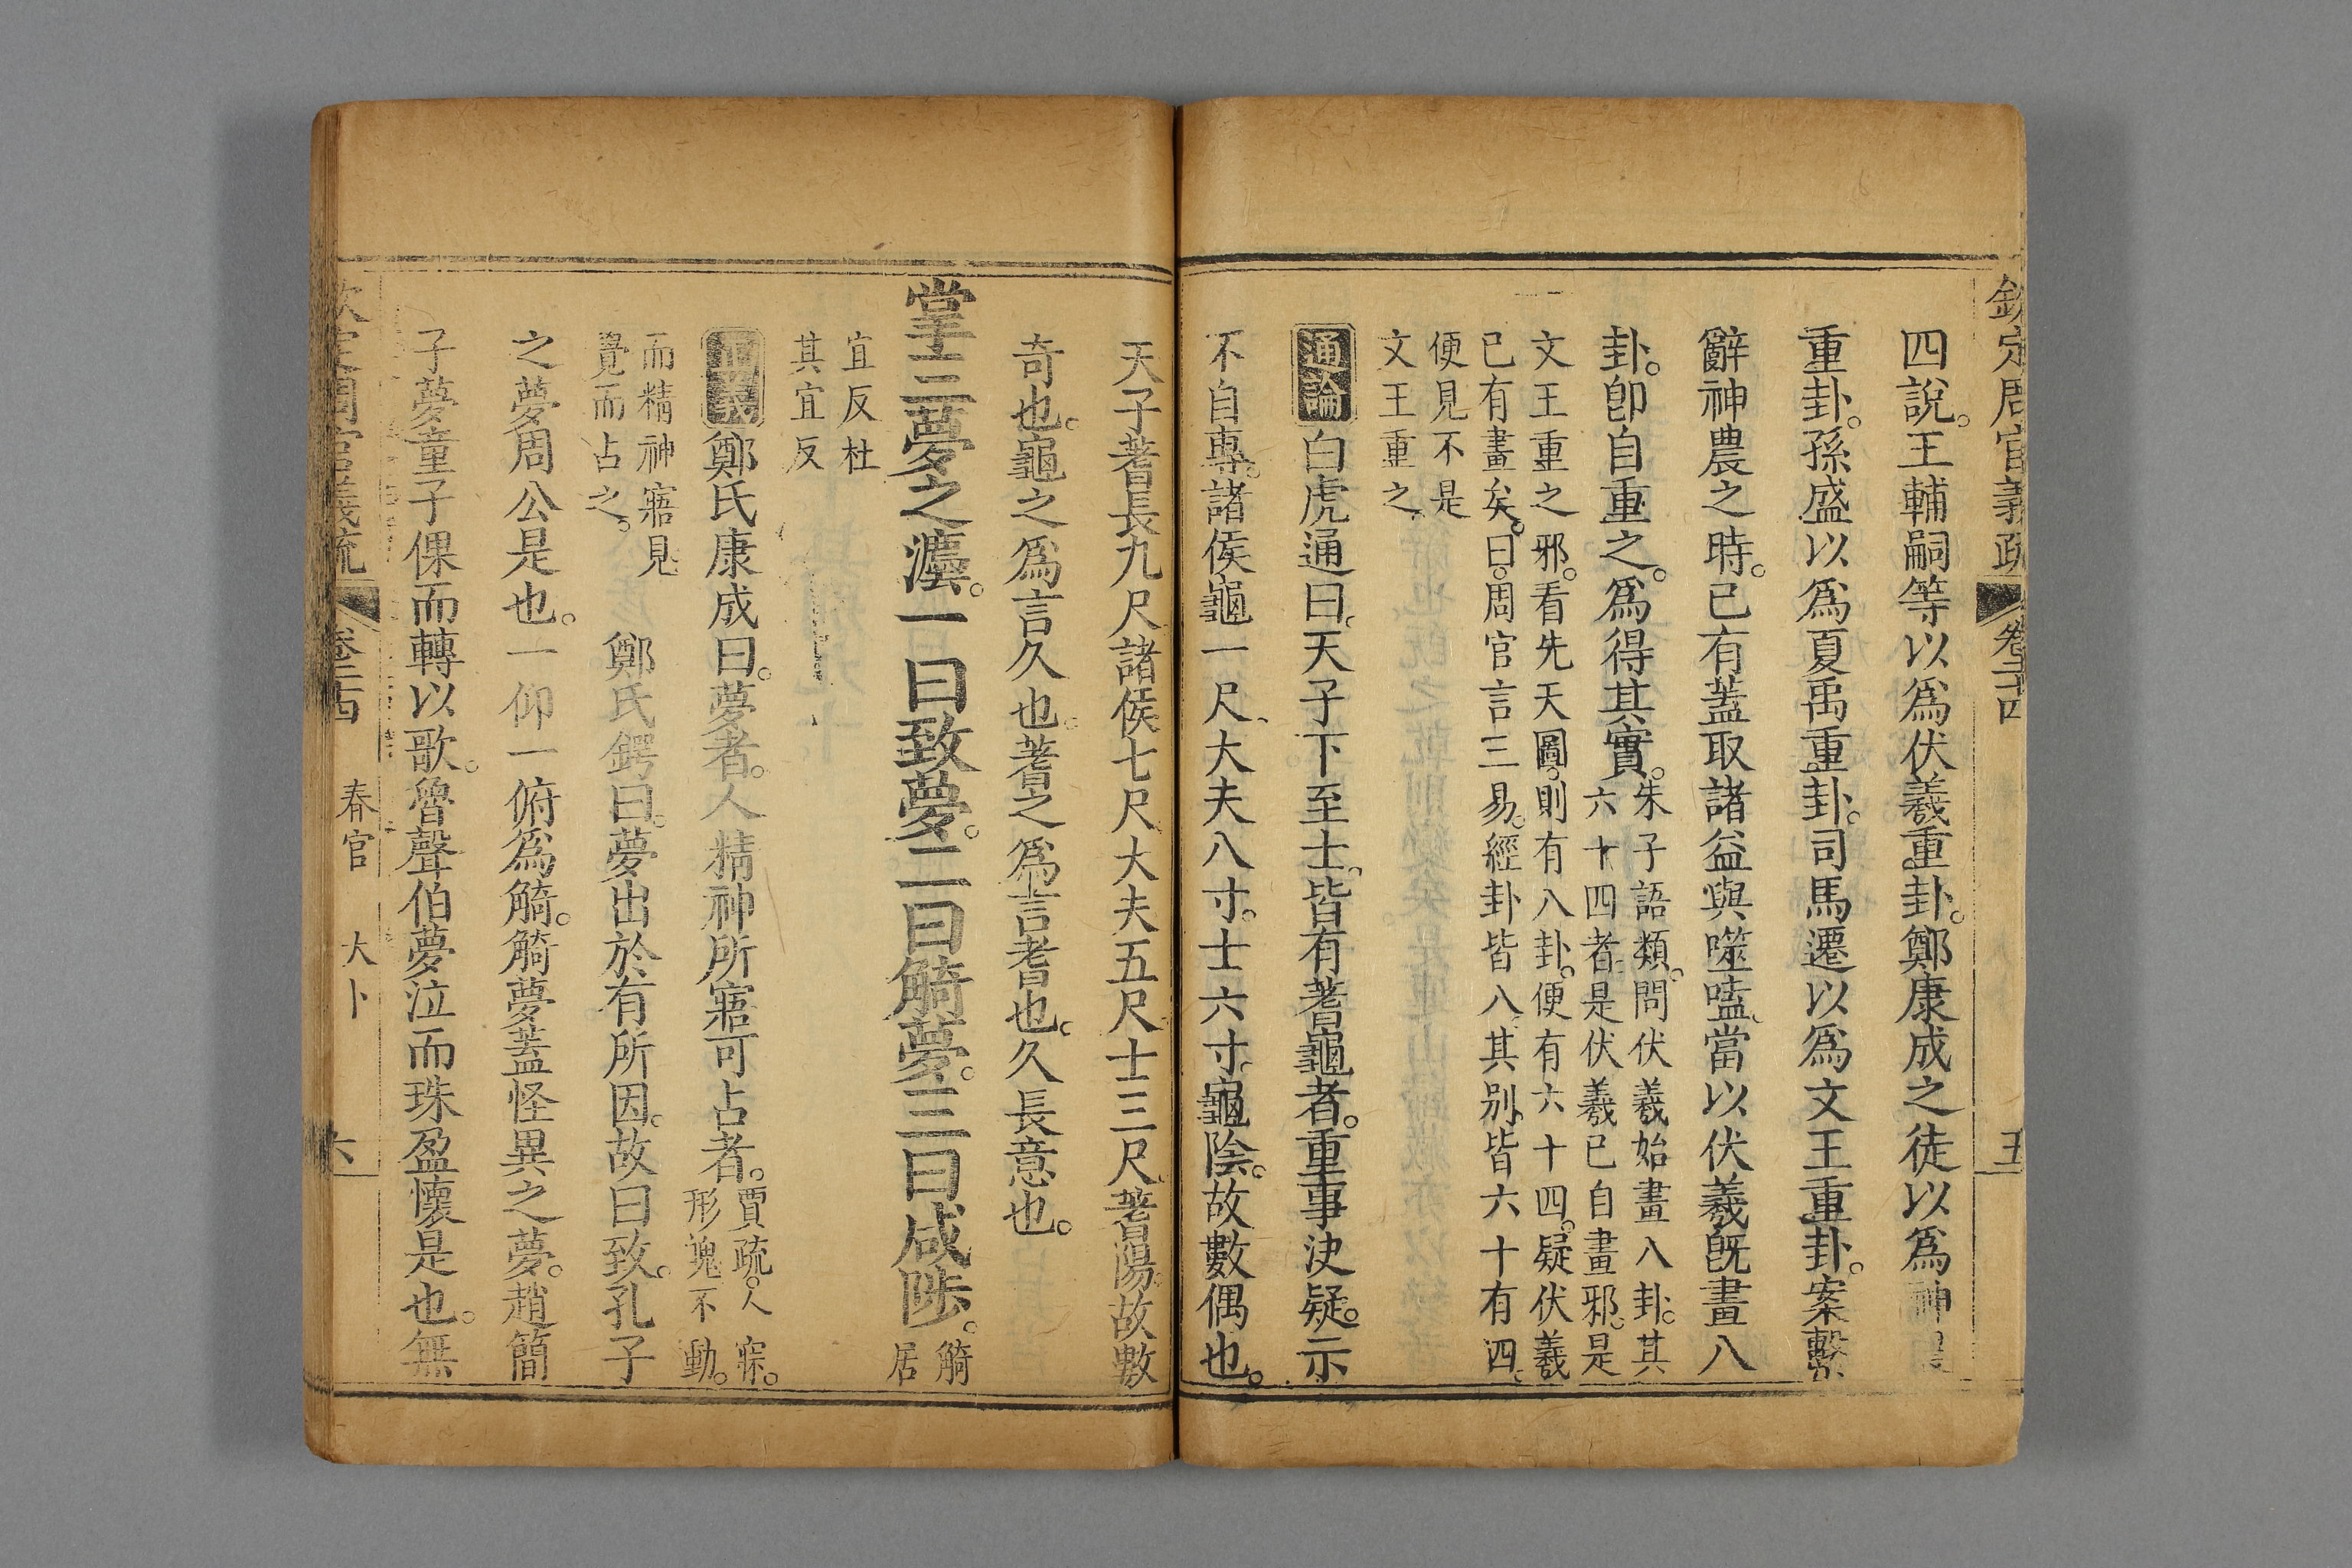 欽定周官義疏 卷二十四 五
四說。王輔嗣等以爲伏羲重卦。鄭康成之徒以爲神農
重卦。孫盛以爲夏禹重卦。司馬遷以爲文王重卦。案繫
辭神農之時。已有蓋取諸益與噬嗑。當以伏羲旣畫八
卦。卽自重之。爲得其實。
朱子語類。問伏羲始畫八卦。其
六十四者是伏羲已自畫邪。是
文王重之邪。看先天圖。則有八卦。便有六十四。疑伏羲
已有畫矣。曰。周官言三易。經卦皆八。其别皆六十有四。
便見不是
文王重之
通論 白虎通曰。天子下至士。皆有蓍龜者。重事決疑。示
不自專。諸侯龜一尺、大夫八寸。士六寸。龜陰。故數偶也。
天子蓍長九尺諸侯七尺大夫五尺士三尺蓍陽。故數
奇也。龜之爲言久也。蓍之爲言耆也。久長意也。
掌三夢之灋。一曰致夢。二曰觭夢。三曰咸陟。
觭
居
宜反杜
其宜反
正義 鄭氏康成曰。夢者。人精神所寤可占者。
賈疏。人寐。
形䰟不動。
而精神寤見
覺而占之。
鄭氏鍔曰。夢出於有所因。故曰致。孔子
之夢周公是也。一仰一俯爲觭。觭夢蓋怪異之夢。趙簡
子夢童子倮而轉以歌。魯聲伯夢泣而珠盈懷是也。無
欽定周官義疏 卷二十四 春官 大卜 六